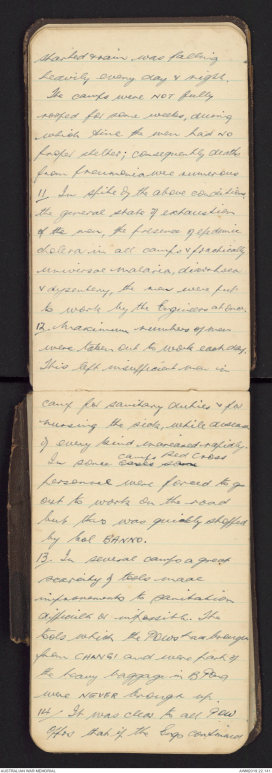 started & rain was falling
heavily every day & night.
The camps were NOT fully
roofed for some weeks, during
which time the men had NO
proper shelter; consequently deaths
from pneumonia were numerous
11. In spite of the above conditions
the general state of exhaustion
of the men, the presence of epidemic
cholera in all camps & practically
universal malaria, diarrhoea
& dysentery, the men were put
to work by the Engineers at once.
12. Maximum numbers of men
were taken out to work each day.
This left insufficient men in
camp for sanitary duties & for
nursing the sick, while disease
of every kind increased rapidly.
In some camps Red Cross
personnel were forced to go
out to work on the road
but this was quickly stopped
by Col BANNO.
13. In several camps a great
scarcity of tools made
improvements to sanitation
difficult or impossible. The
tools which the POWs had brought
from CHANGI and were part of
the heavy baggage in B Pong
were NEVER brought up.
14/ It was clear to all POW
Offrs that if the Engs continued
AUSTRALIAN WAR MEMORIAL